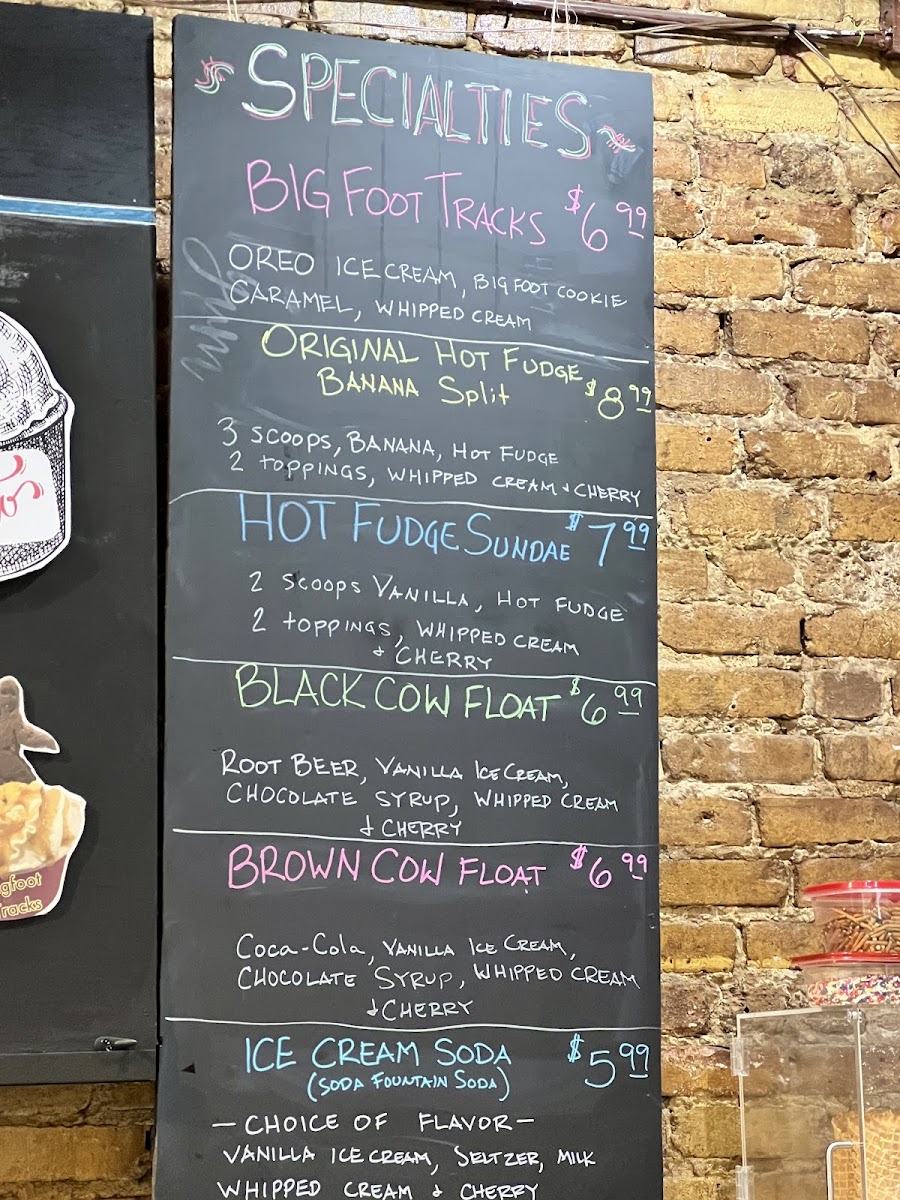 SPECIALTIES
BIG FOOT TRACKS $6.99
OREO ICE CREAM, BIGFOOT COOKIE
CARAMEL, WHIPPED CREAM
ORIGINAL HOT FUDGE
BANANA Split $8.99
3 SCOOPS, BANANA, HOT FUDGE
2 TOPPINGS, WHIPPED CREAM & CHERRY
HOT FUDGE SUNDAE $7.99
2 SCOOPS VANILLA, HOT FUDGE
2 TOPPINGS, WHIPPED CREAM
& CHERRY
BLACK COW FLOAT $6.99
ROOT BEER, VANILLA ICE CREAM,
CHOCOLATE SYRUP, WHIPPED CREAM
& CHERRY
BROWN COW FLOAT $6.99
Coca-Cola, VANILLA ICE CREAM,
CHOCOLATE SYRUP, WHIPPED CREAM
& CHERRY
ICE CREAM SODA $5.99
(SODA FOUNTAIN SODA)
- CHOICE OF FLAVOR -
VANILLA ICE CREAM, SELTZER, MILK
WHIPPED CREAM & CHERRY
gfoot
racks